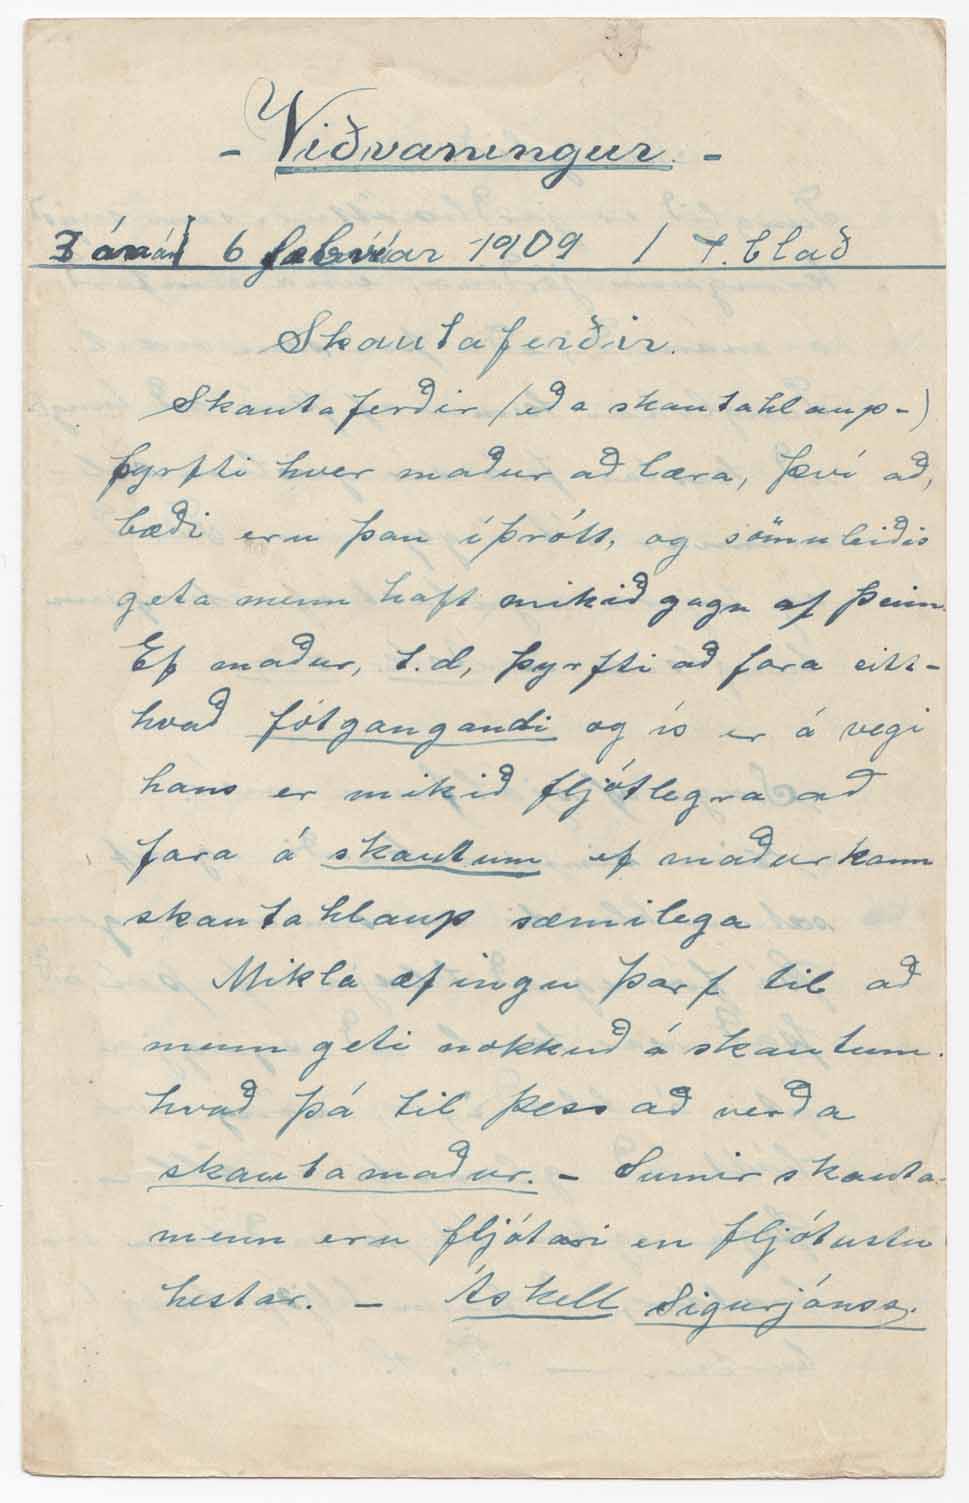 - Viðvaningur. -
3 6 febrúar 1909 / 7. blað
Skautaferðir.
Skautaferðir (eða skautahlaup-)
þyrfti hver maður að læra, því að,
bæði eru þau íþrótt, og sömuleiðis
geta menn haft mikið gagn af þeim.
Ef maður, t.d, þyrfti að fara eitt-
hvað fótgangandi og ís er á vegi
hans er mikið fljótlegra að
fara á skautum ef maður kann
skautahlaup sæmilega
Mikla æfingu þarf til að
menn geti nokkuð á skautum.
hvað þá til þess að verða
skautamaður. - Sumir skauta-
menn eru fljótari en fljótustu
hestar. - Áskell Sigurjónss.